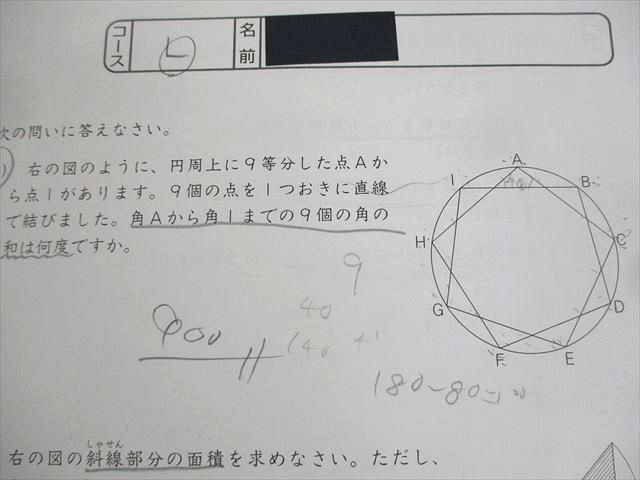 コース
名前
次の問いに答えなさい。
右の図のように、円周上に9等分した点Aか
ら点Iがあります。9個の点を1つおきに直線
で結びました。角Aから角Iまでの9個の角の
和は何度ですか。
A
I
B
H
C
G
D
F
E
9
40
900
180-80=100
しゃせん
右の図の斜線部分の面積を求めなさい。ただし、